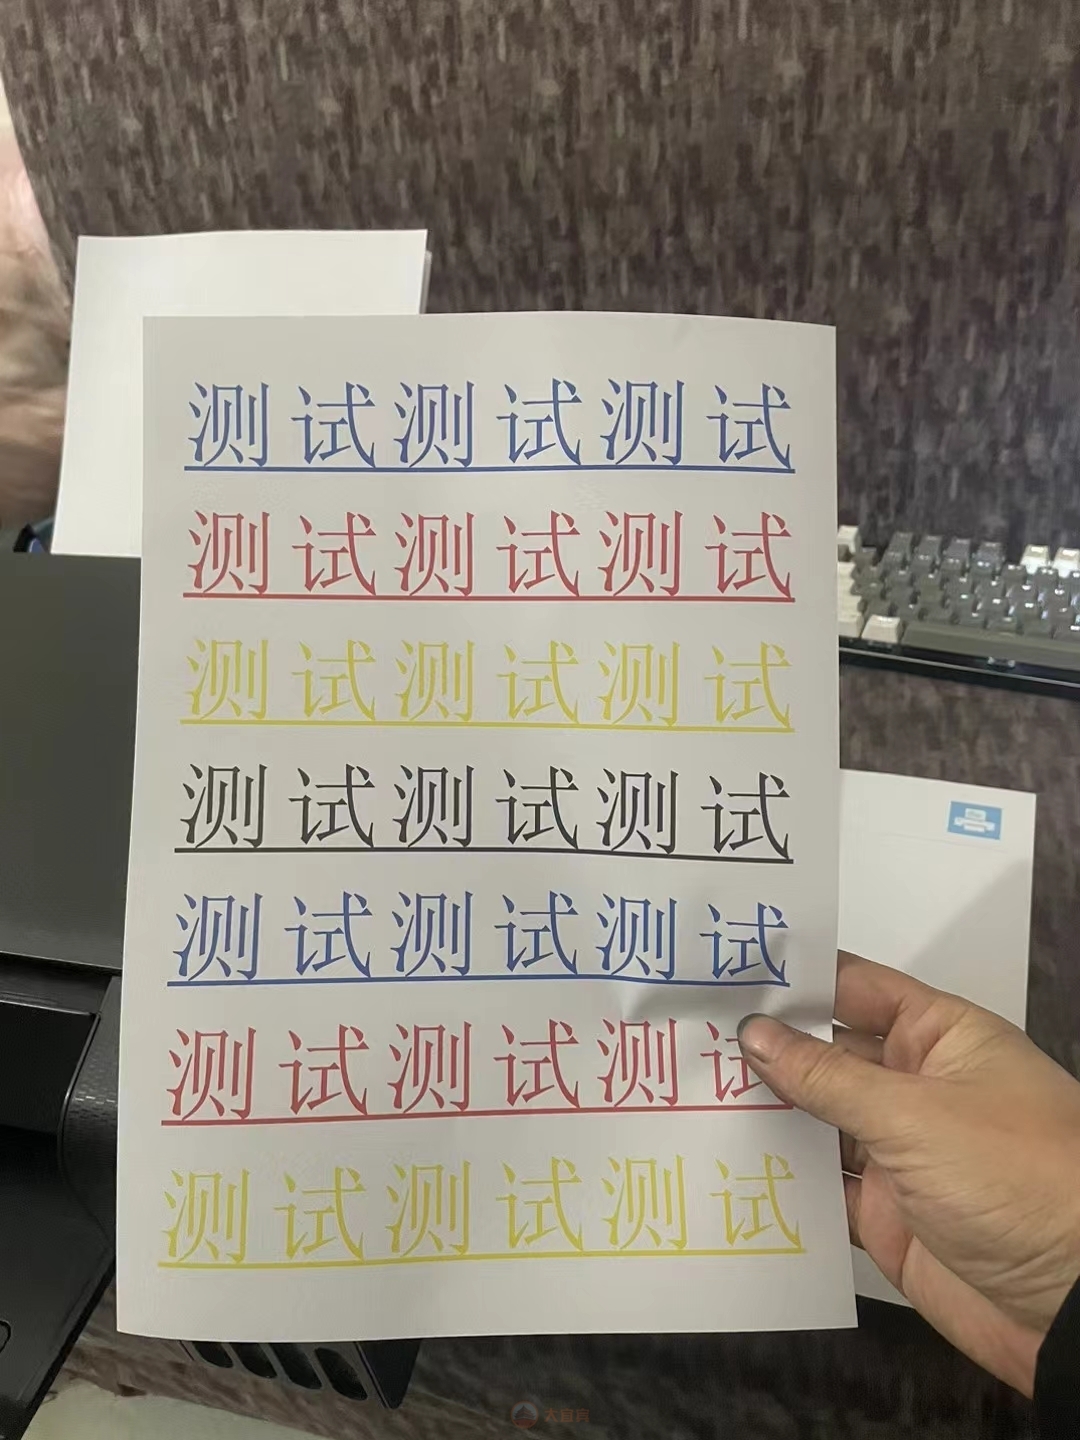 测试测试测试
测试测试测试
测试测试测试
测试测试测试
测试测试测试
测试测试测试
测试测试测试